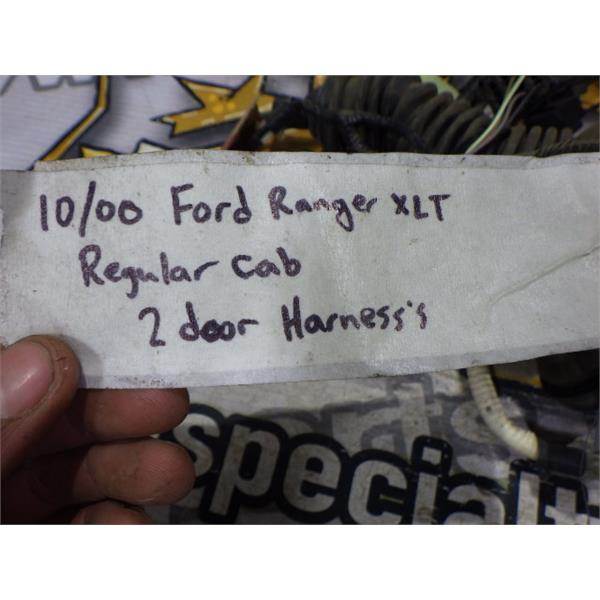 10/00 Ford Ranger XLT
Regular Cab
2 door Harness's
specialt